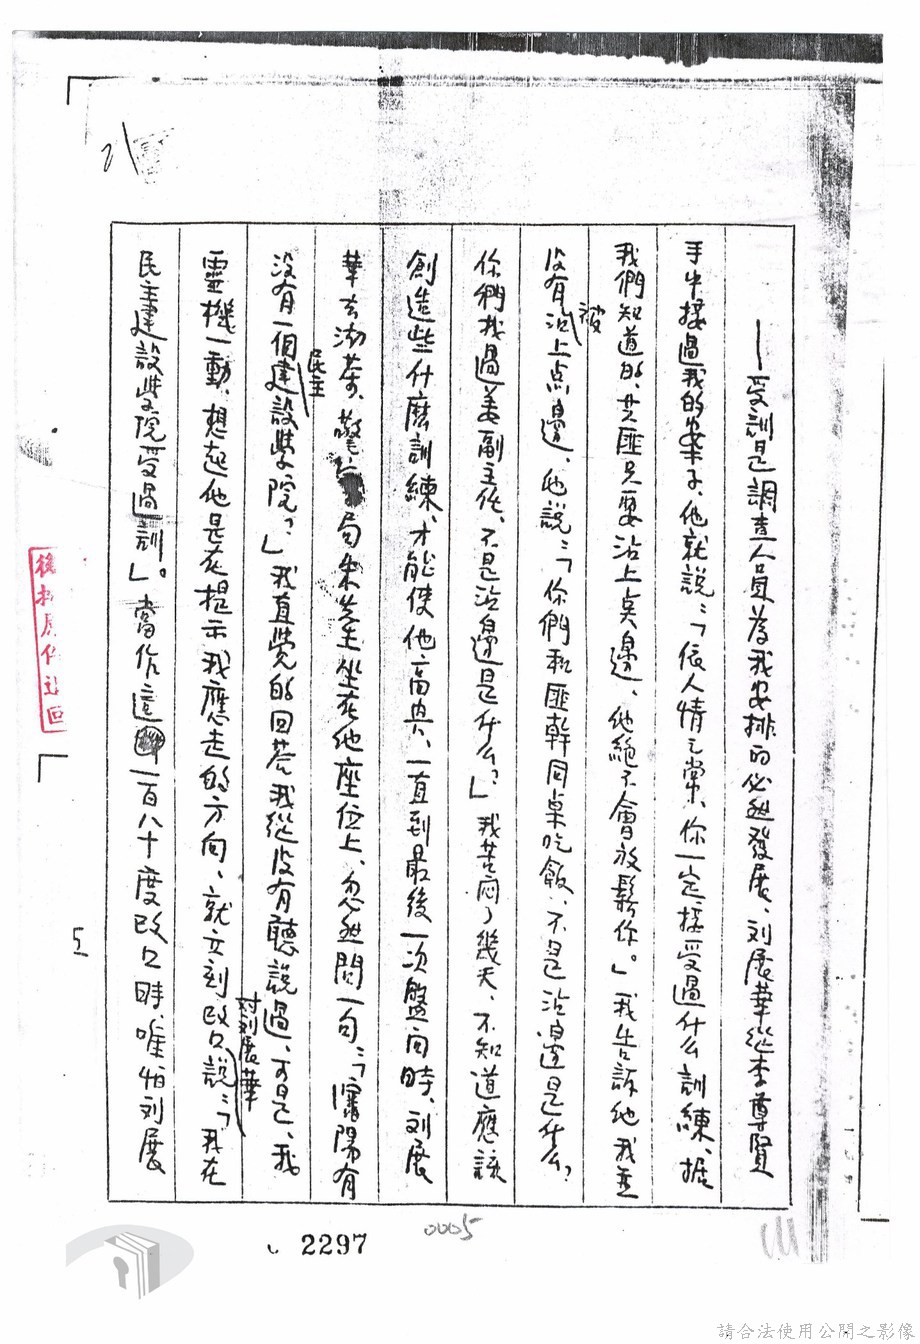 ——受訓是調查人員為我安排的必然發展、刘展華從李尊賢
手中接過我的案子、他就說：「依人情之常、你一定接受過什么訓練、据
我們知道的、共匪只要沾上点邊、他絕不會放鬆你。」我告訴他我並
没有被沾上点邊、他說：「你們和匪幹同桌吃飯、不是沾邊是什么？
你們找過姜副主任、不是沾邊是什么？」我苦悶了幾天、不知道應該
創造些什麽訓練、才能使他高興、一直到最後一次盤問時、刘展
華去泡茶、警 局朱 坐在他座位上、忽然問一句：「瀋陽有
没有一個民主建設學院？」我直覺的回答我從没有聽說過、可是、我
靈機一動、想起他是在提示我應走的方向、就立刻改口對刘展華說：「我在
民主建設學院受過訓」。當作這一百八十度改口時、唯怕刘展
5
2297
0005
請合法使用公開之影像